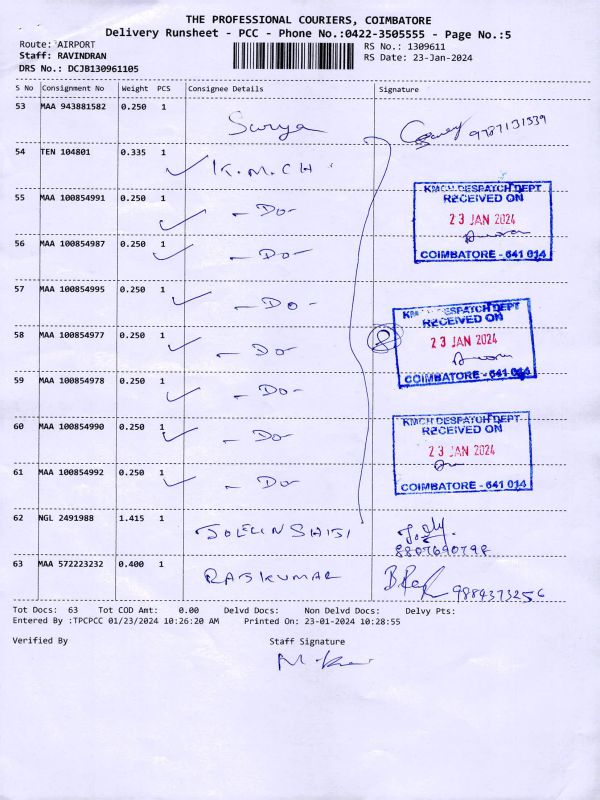 THE PROFESSIONAL COURIERS, COIMBATORE
Delivery Runsheet - PCC - Phone No.:0422-3505555 - Page No.:5
Route: AIRPORT
RS No.: 1309611
Staff: RAVINDRAN
RS Date: 23-Jan-2024
DRS No.: DCJB130961105
S No Consignment No Weight PCS Consignee Details Signature
53 MAA 943881582 0.250 1
Surya
9787131539
54 TEN 104801 0.335 1
K.M.CH
KMCH DESPATCH DEPT
RECEIVED ON
23 JAN 2024
COIMBATORE - 641 014
55 MAA 100854991 0.250 1
- Do -
56 MAA 100854987 0.250 1
- Do -
57 MAA 100854995 0.250 1
- Do -
KMCH DESPATCH DEPT
RECEIVED ON
23 JAN 2024
COIMBATORE - 641 014
8
58 MAA 100854977 0.250 1
- Do -
59 MAA 100854978 0.250 1
- Do -
60 MAA 100854990 0.250 1
- Do -
KMCH DESPATCH DEPT
RECEIVED ON
23 JAN 2024
COIMBATORE - 641 014
61 MAA 100854992 0.250 1
- Do -
62 NGL 2491988 1.415 1
63 MAA 572223232 0.400 1
RAJKUMAR
9884373256
Tot Docs: 63 Tot COD Amt: 0.00 Delvd Docs: Non Delvd Docs: Delvy Pts:
Entered By :TPCPCC 01/23/2024 10:26:20 AM Printed On: 23-01-2024 10:28:55
Verified By Staff Signature